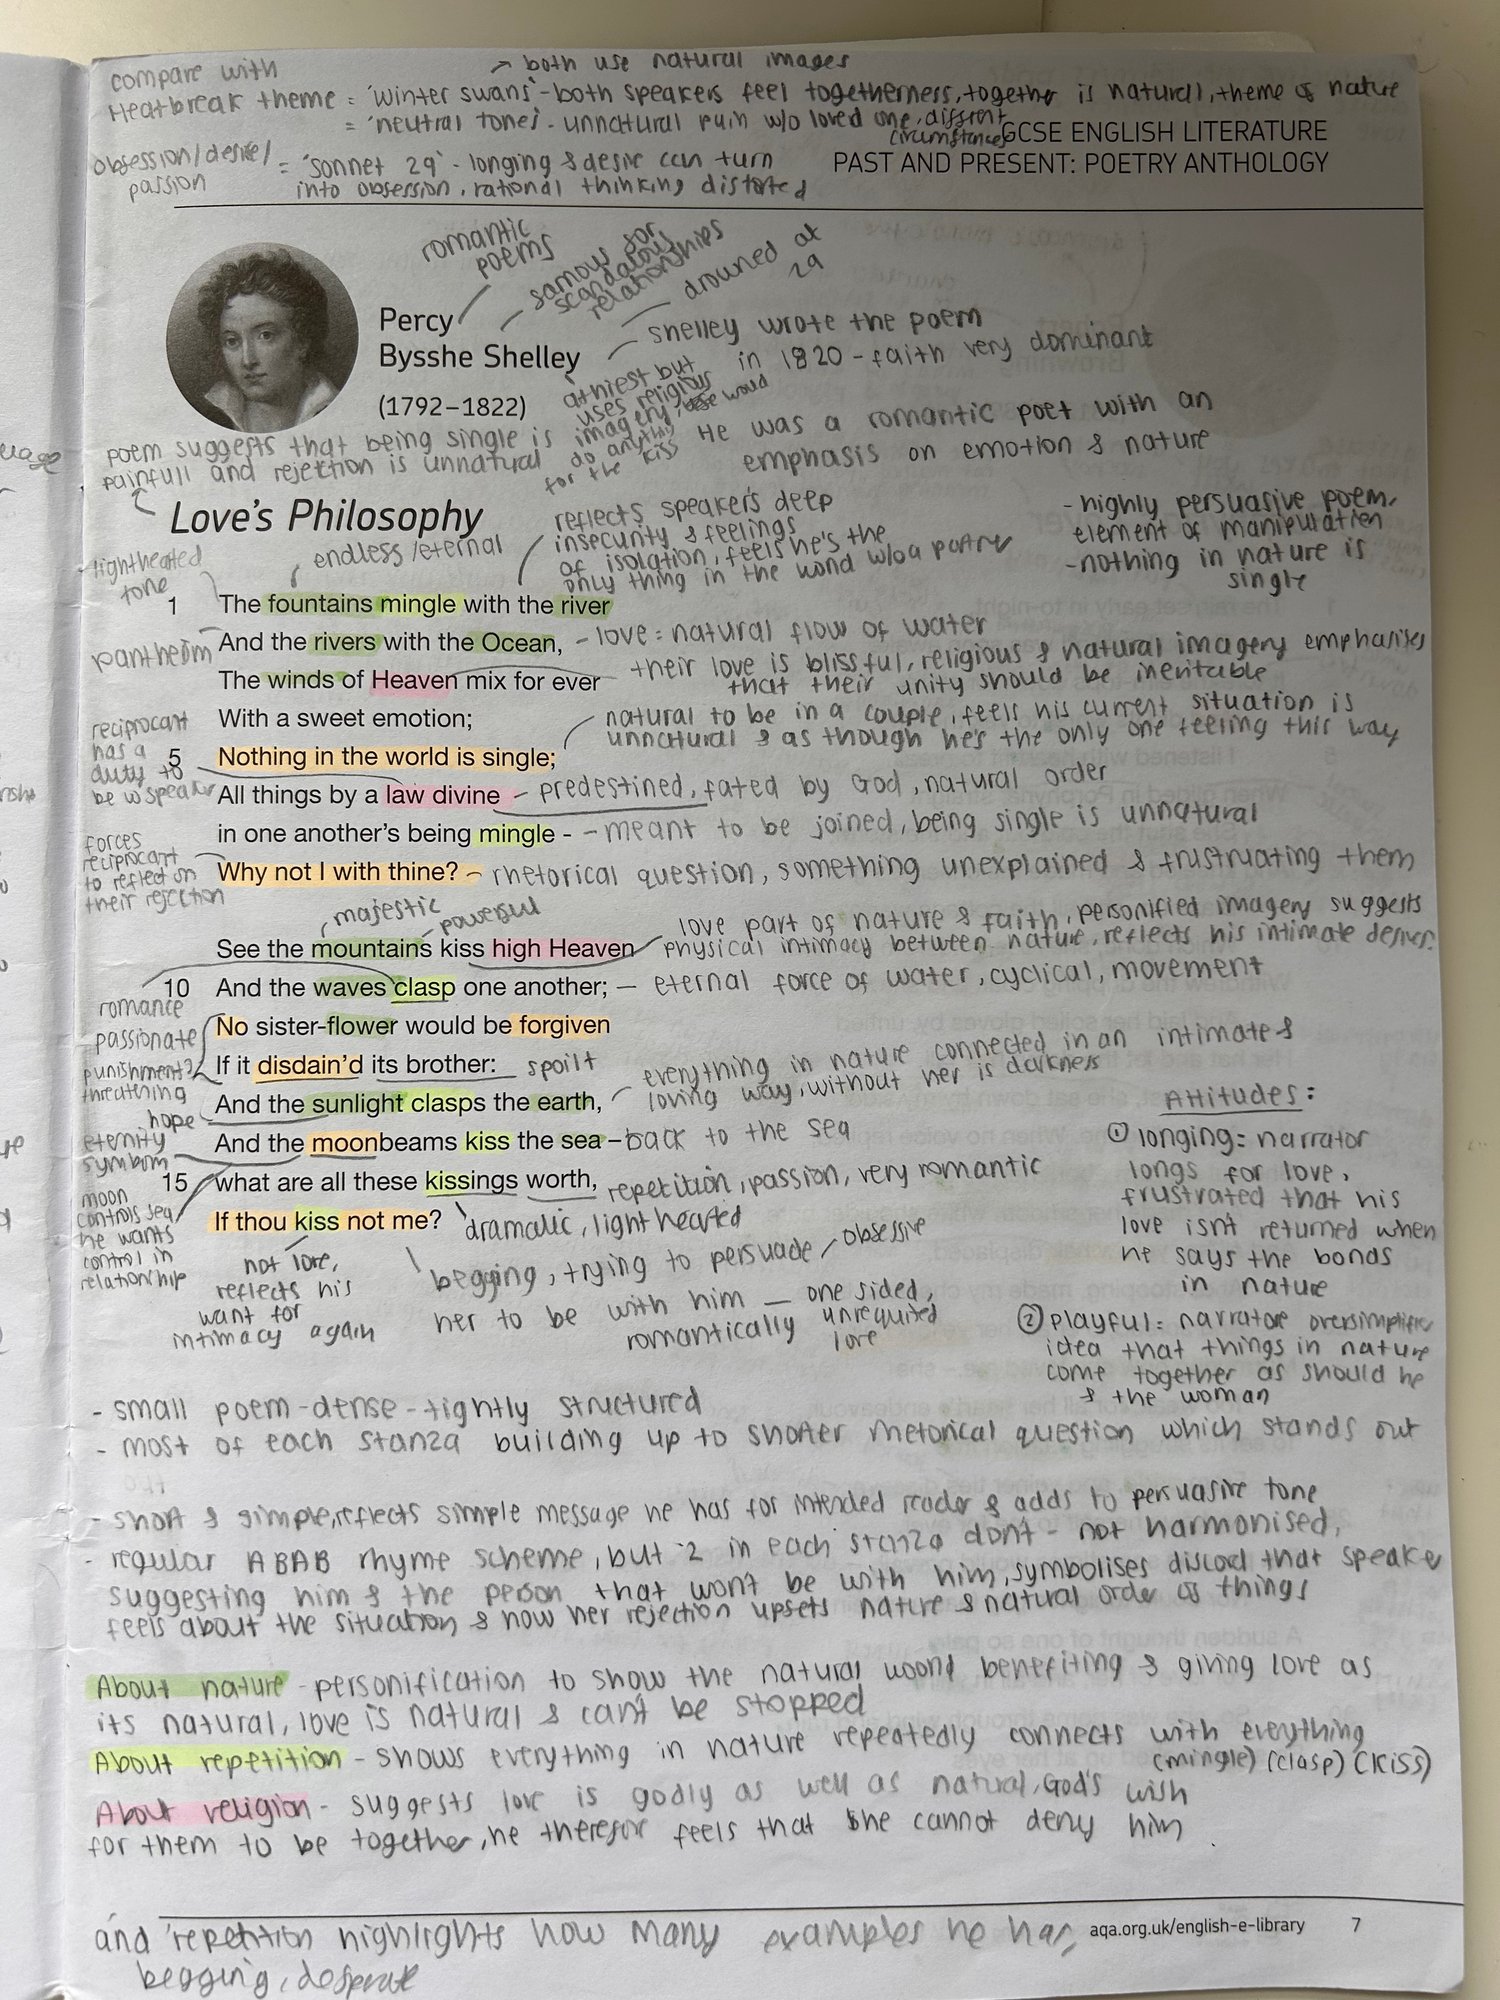 compare with
→ both use natural images
Heatbreak theme = 'winter swans' - both speakers feel togetherness, together is natural, theme of nature
= 'neutral tones' - unnatural pain w/o loved one, different circumstances
GCSE ENGLISH LITERATURE
PAST AND PRESENT: POETRY ANTHOLOGY
obsession/desire/
passion
= 'sonnet 29' - longing & desire can turn
into obsession, rational thinking distorted
romantic
poems
famous for
scandalous
relationships
drowned at
29
Percy
Bysshe Shelley
(1792–1822)
shelley wrote the poem
in 1820 - faith very dominant
athiest but
uses religious
imagery, would
do anything
for the kiss
He was a romantic poet with an
emphasis on emotion & nature
poem suggests that being single is
painfull and rejection is unnatural
Love's Philosophy
endless/eternal
reflects speaker's deep
insecurity & feelings
of isolation, feels he's the
only thing in the world w/o a partner
- highly persuasive poem,
element of manipulation
- nothing in nature is
single
lighthearted
tone
1 The fountains mingle with the river
And the rivers with the Ocean,
- love = natural flow of water
pantheism
The winds of Heaven mix for ever
their love is blissful, religious & natural imagery emphasises
that their unity should be inevitable
With a sweet emotion;
natural to be in a couple, feels his current situation is
unnatural & as though he's the only one feeling this way
reciprocant
has a
duty to
be w speaker
5 Nothing in the world is single;
All things by a law divine
- predestined, fated by God, natural order
in one another's being mingle -
- meant to be joined, being single is unnatural
forces
reciprocant
to reflect on
their rejection
Why not I with thine?
- rhetorical question, something unexplained & frustruating them
majestic
powerful
See the mountains kiss high Heaven
love part of nature & faith, personified imagery suggests
physical intimacy between nature, reflects his intimate desires.
10 And the waves clasp one another;
- eternal force of water, cyclical, movement
romance
passionate
No sister-flower would be forgiven
punishment?
threatening
If it disdain'd its brother:
spoilt
everything in nature connected in an intimate &
loving way, without her is darkness
And the sunlight clasps the earth,
hope
And the moonbeams kiss the sea –
back to the sea
eternity
symbom
15 what are all these kissings worth,
repetition, passion, very romantic
moon
controls sea
he wants
control in
relationship
If thou kiss not me?
dramatic, light hearted
not love,
reflects his
want for
intimacy again
begging, trying to persuade / obsessive
her to be with him — one sided,
romantically unrequited
love
Attitudes:
① longing = narrator
longs for love,
frustrated that his
love isn't returned when
he says the bonds
in nature
② playful = narrator oversimplifies
idea that things in nature
come together as should he
& the woman
- small poem - dense - tightly structured
- most of each stanza building up to shorter rhetorical question which stands out
- short & simple, reflects simple message he has for intended reader & adds to persuasive tone
- regular ABAB rhyme scheme, but 2 in each stanza don't - not harmonised,
suggesting him & the person that won't be with him, symbolises discord that speaker
feels about the situation & how her rejection upsets nature & natural order of things
About nature - personification to show the natural woond benefiting & giving love as
its natural, love is natural & can't be stopped
About repetition - shows everything in nature repeatedly connects with everything
(mingle) (clasp) (kiss)
About religion - suggests love is godly as well as natural, God's wish
for them to be together, he therefore feels that she cannot deny him
and repetition highlights how many examples he has,
begging, desperate
aqa.org.uk/english-e-library 7